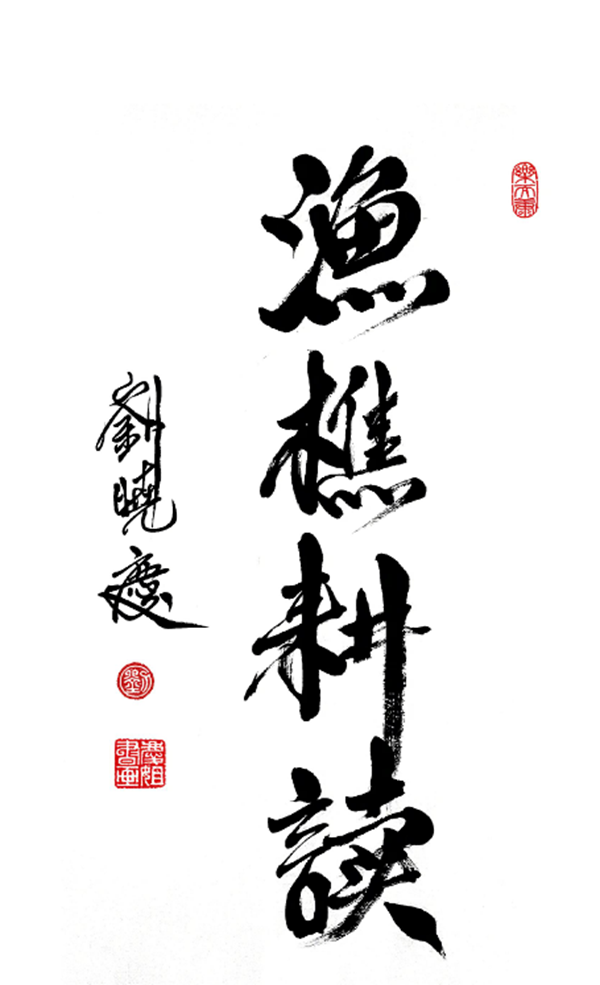 漁樵耕讀
劉曉慶
劉
慶姐書画